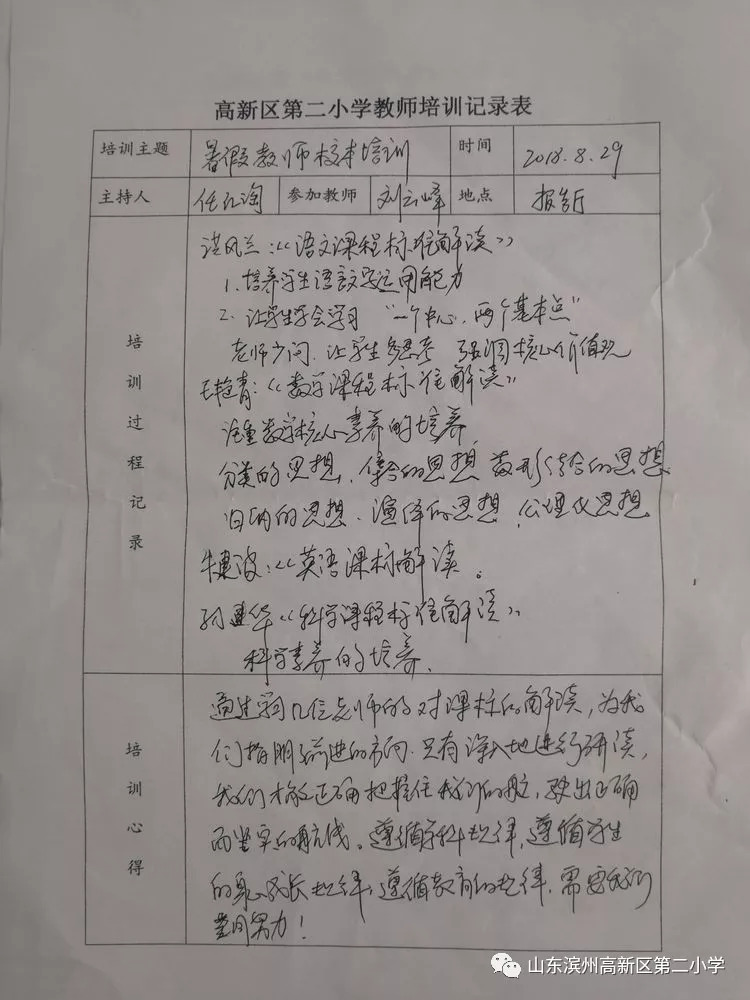 高新区第二小学教师培训记录表
培训主题 暑假教师校本培训 时间 2018.8.29
主持人 任孔淘 参加教师 刘云峰 地点 报告厅
培训过程记录
洪风兰:《语文课程标准解读》
1.培养学生语言文字运用能力
2.让学生学会学习 "一个中心,两个基本点"
老师少问,让学生多思考 强调核心价值观
青:《数学课程标准解读》
注重数学核心素养的培养,
分类的思想、集合的思想 数形结合的思想
归纳的思想、演绎的思想、公理化思想
朱建波:《英语课标解读。
孙建华《科学课程标准解读》
科学素养的培养.
培训心得
通过学习几位老师的对课标的解读,为我
们指明前进的方向.只有深入地进行研读,
我们才能正确把握住我们的航,驶出正确
而坚实的航线。遵循学科规律,遵循学生
的身心成长规律,遵循教育的规律,需要我们
共同努力!
山东滨州高新区第二小学